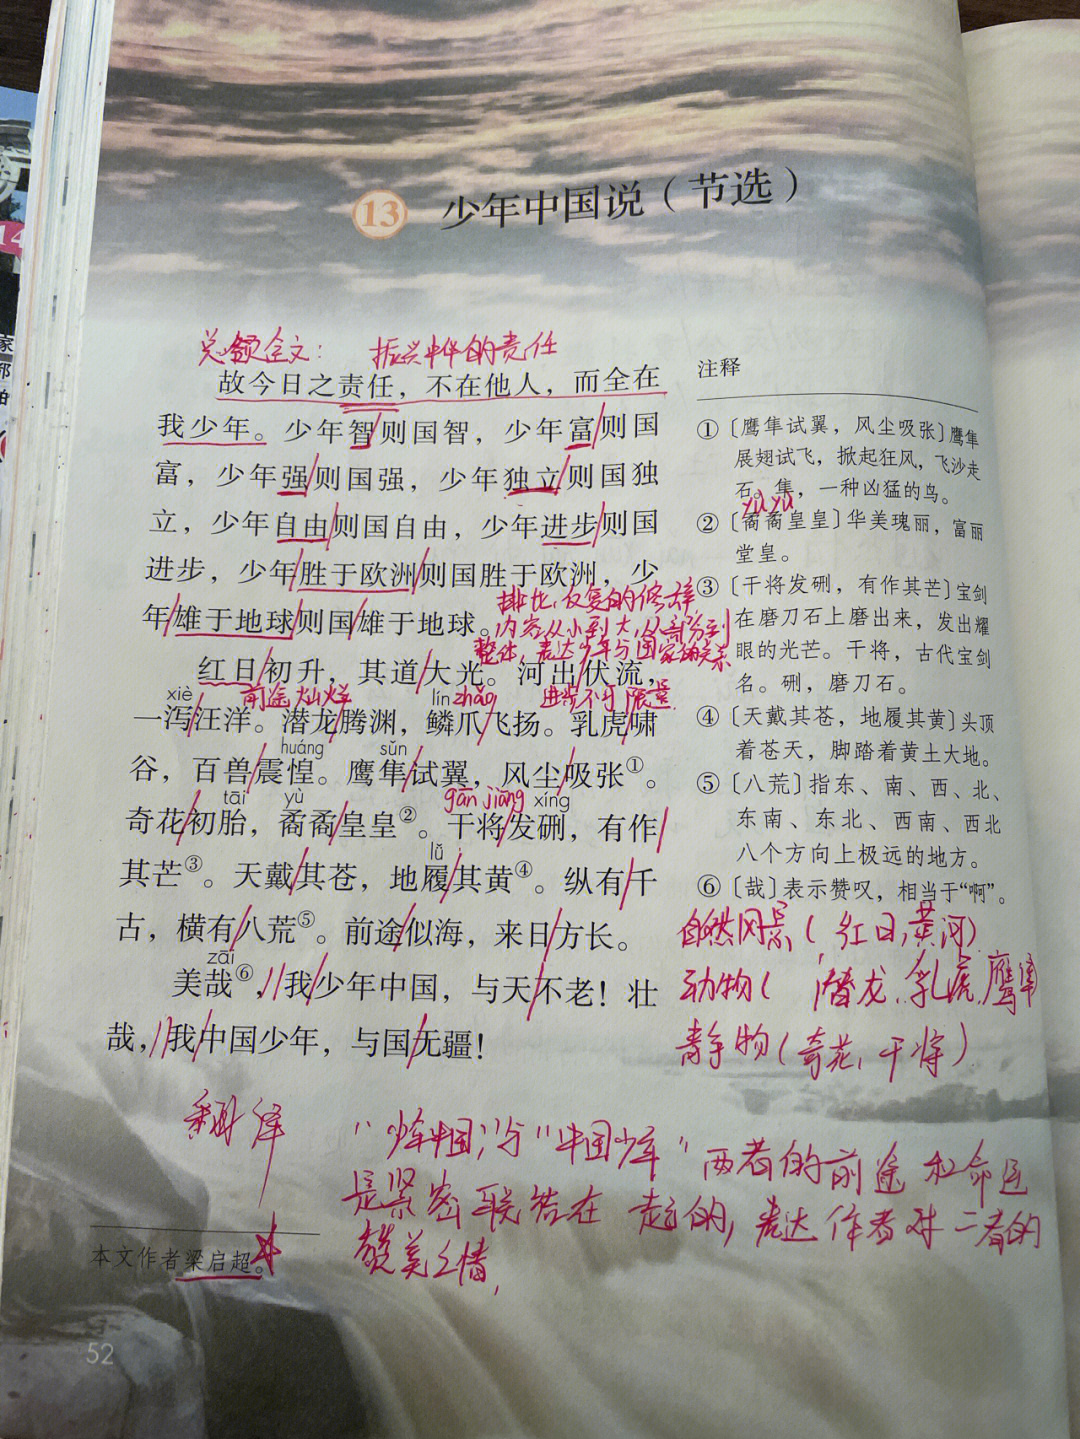 13 少年中国说（节选）
总领全文： 振兴中华的责任
故今日之责任，不在他人，而全在
我少年。少年智则国智，少年富则国
富，少年强则国强，少年独立则国独
立，少年自由则国自由，少年进步则国
进步，少年胜于欧洲则国胜于欧洲，少
年雄于地球则国雄于地球。
排比,反复的修辞
内容从小到大,从部分到
整体,表达少年与国家的关系
红日初升，其道大光。河出伏流，
前途灿烂 进步不可限量
xiè lín zhǎo
一泻汪洋。潜龙腾渊，鳞爪飞扬。乳虎啸
huáng sǔn
谷，百兽震惶。鹰隼试翼，风尘吸张①。
tāi yù gān jiāng xíng
奇花初胎，矞矞皇皇②。干将发硎，有作
lǚ
其芒③。天戴其苍，地履其黄④。纵有千
古，横有八荒⑤。前途似海，来日方长。
zāi
美哉⑥，我少年中国，与天不老！壮
哉，我中国少年，与国无疆！
注释
①〔鹰隼试翼，风尘吸张〕鹰隼
展翅试飞，掀起狂风，飞沙走
石。隼，一种凶猛的鸟。
yù yù
②〔矞矞皇皇〕华美瑰丽，富丽
堂皇。
③〔干将发硎，有作其芒〕宝剑
在磨刀石上磨出来，发出耀
眼的光芒。干将，古代宝剑
名。硎，磨刀石。
④〔天戴其苍，地履其黄〕头顶
着苍天，脚踏着黄土大地。
⑤〔八荒〕指东、南、西、北、
东南、东北、西南、西北
八个方向上极远的地方。
⑥〔哉〕表示赞叹，相当于“啊”。
自然风景(红日,黄河)
动物( 潜龙,乳虎,鹰隼
静物(奇花,干将)
翻译
"少年中国"与"中国少年"两者的前途和命运
是紧密联结在一起的,表达作者对二者的
赞美之情,
本文作者梁启超。
52
14